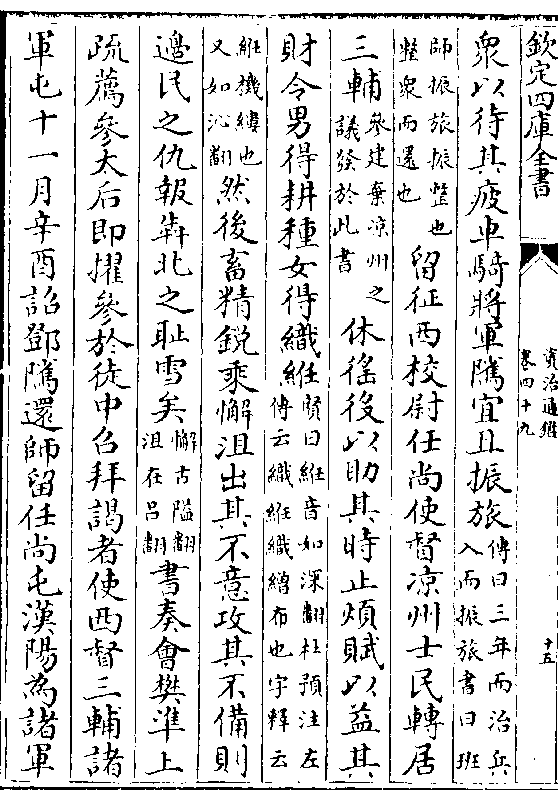 欽定四庫全書
資治通鑑
卷四十九
十五
衆以待其疲車騎將軍隲宜且振旅
傳曰三年而治兵
入而振旅書曰班
師振旅振整也
整衆而還也
留征西校尉任尚使督涼州士民轉居
三輔
參建棄涼州之
議發於此書
休徭役以助其時止煩賦以益其
財令男得耕種女得織紝
賢曰紝音如深翻杜預注左
傳云織紝織繒布也字釋云
紝機縷也
又如沁翻
然後畜精銳乘懈沮出其不意攻其不備則
邊民之仇報奔北之耻雪矣
懈古隘翻
沮在呂翻
書奏會樊準上
疏薦參太后即擢參於徒中召拜謁者使西督三輔諸
軍屯十一月辛酉詔鄧隲還師留任尚屯漢陽為諸軍